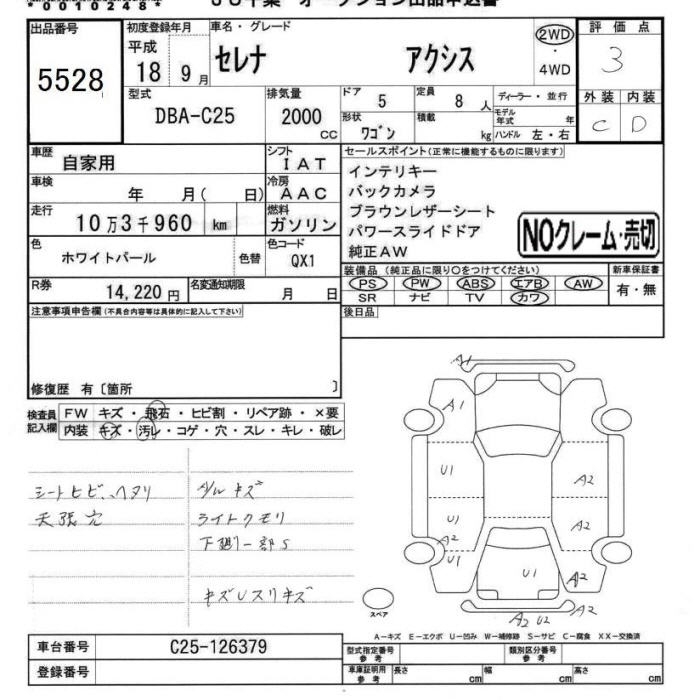 *0010248*
JU千葉 オークション出品申込書
出品番号 初度登録年月 車名・グレード 評価点
5528 平成 18 9月 セレナ アクシス 2WD・4WD 3
外装 内装
C D
型式 排気量 ドア 5 定員 8人 ディーラー・並行
DBA-C25 2000cc 形状 ワゴン 積載 kg モデル年式 年
ハンドル 左・右
車歴 自家用 シフト IAT
車検 年 月(日) 冷房 AAC
走行 10万3千960 km 燃料 ガソリン
色 ホワイトパール 色替 色コード QX1
R券 14,220円 名変通知期限 月 日
セールスポイント(正常に機能するものに限ります)
インテリキー
バックカメラ
ブラウンレザーシート
パワースライドドア
純正AW
NOクレーム・売切
装備品(純正品に限り○をつけてください) 新車保証書
PS PW ABS エアB AW 有・無
SR ナビ TV カワ
後日品
注意事項申告欄(不具合内容等は具体的に記入して下さい)
修復歴 有〔箇所 〕
検査員記入欄 FW キズ・飛石・ヒビ割・リペア跡・×要
内装 キズ・汚レ・コゲ・穴・スレ・キレ・破レ
シートヒビ、ヘタリ
天張穴
ライトクモリ
下廻り一部S
A1
A1
U1
A2
U1
A2
A2
A2
U1
U1
A2
A2 U2
スペア
A-キズ E-エクボ U-凹み W-補修跡 S-サビ C-腐食 XX-交換済
車台番号 C25-126379
登録番号
型式指定番号 参考 類別区分番号 参考
車庫証明用 参考 長さ cm 幅 cm 高さ cm